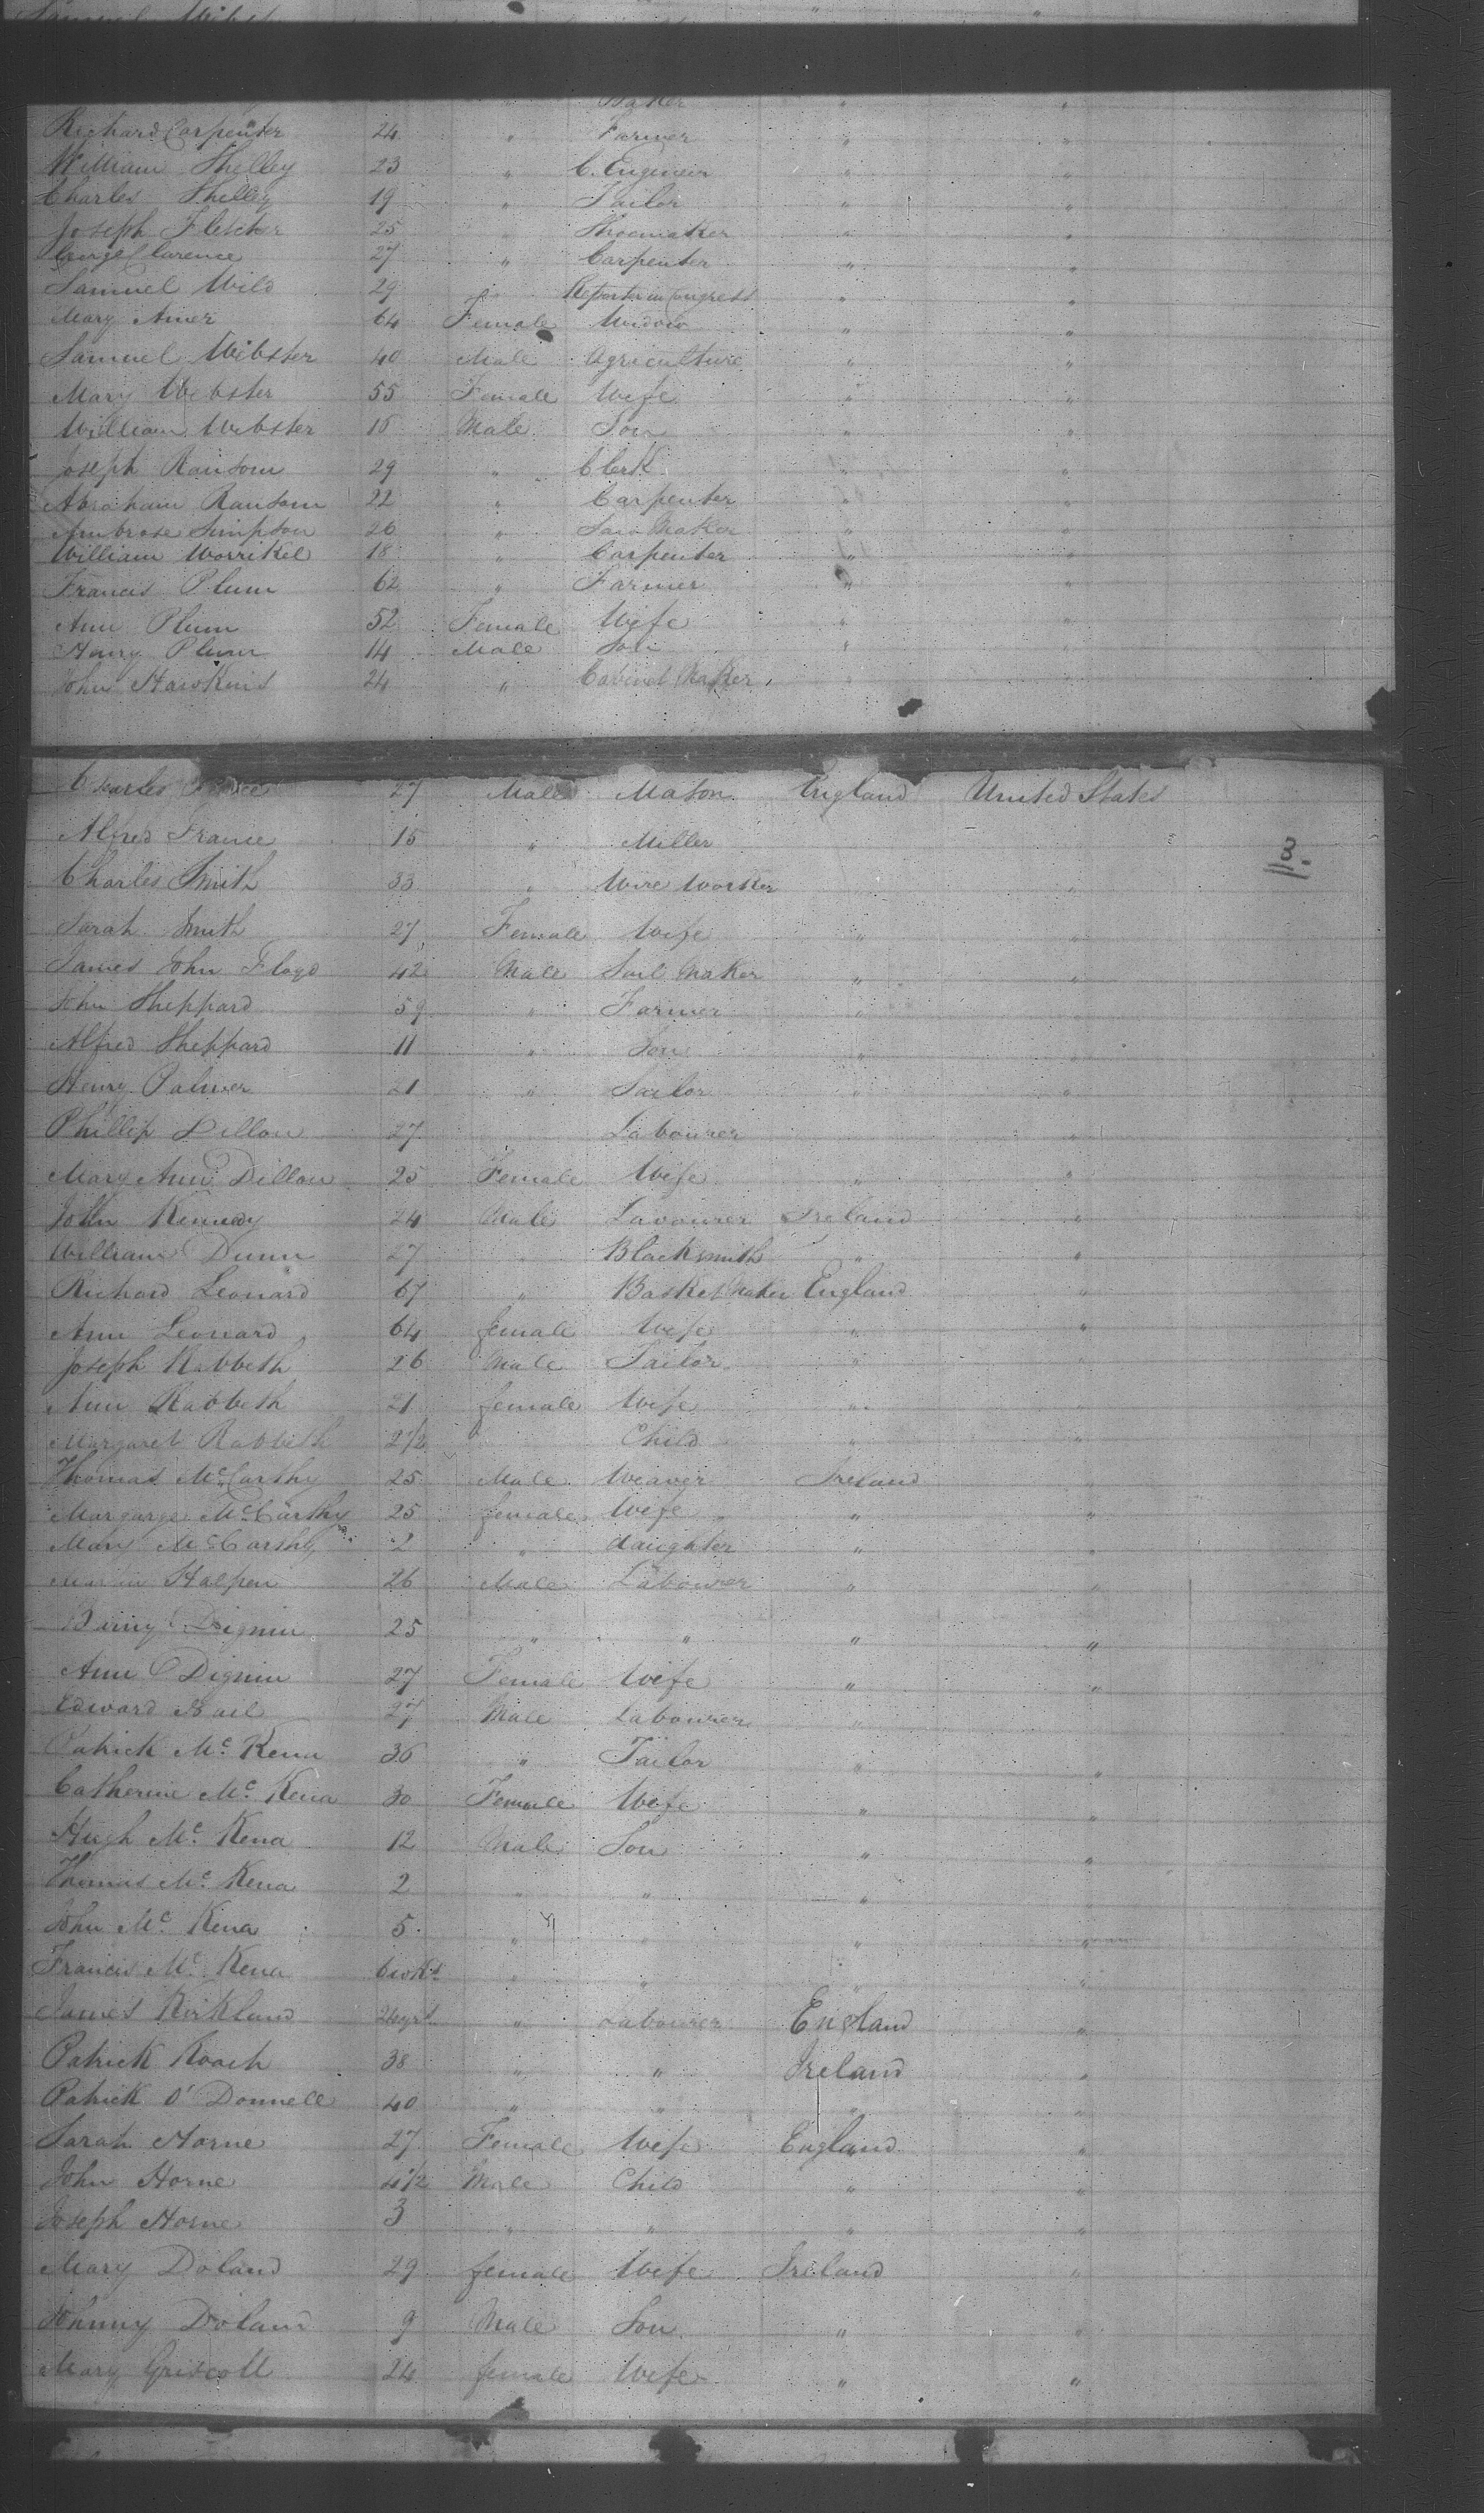 Samuel Webst
Baker " "
Richard Carpenter 24 " Farmer " "
William Shelley 23 " C. Engineer " "
Charles Shelley 19 " Tailor " "
Joseph Fletcher 25 " Shoemaker " "
George Clarence 27 " Carpenter " "
Samuel Wild 29 " Reporter in Congress " "
Mary Amer 64 Female Widow " "
Samuel Webster 40 Male Agriculture " "
Mary Webster 55 Female Wife " "
William Webster 15 Male Son " "
Joseph Ransom 29 " Clerk " "
Abraham Ransom 22 " Carpenter " "
Ambrose Simpson 26 " Saw Maker " "
William Worrikel 18 " Carpenter " "
Francis Plum 62 " Farmer " "
Ann Plum 52 Female Wife " "
Henry Plum 14 Male Son " "
John Hawkins 24 " Cabinet Maker "
Charles 27 Male Mason England United States
Alfred France 15 " Miller
3.
Charles Smith 33 " Wire Worker "
Sarah Smith 27 Female Wife " "
James John Floyd 42 Male Sail Maker " "
John Sheppard 59 " Farmer " "
Alfred Sheppard 11 " Son " "
Henry Palmer 21 " Tailor " "
Phillip Dillon 27 Labourer "
Mary Ann Dillon 25 Female Wife " "
John Kennedy 24 Male Labourer Ireland "
William Dunn 27 " Blacksmith " "
Richard Leonard 67 " Basket Maker England "
Ann Leonard 64 female Wife " "
Joseph Rabbeth 26 Male Tailor " "
Ann Rabbeth 21 female Wife " "
Margaret Rabbeth 2 1/2 Child " "
Thomas McCarthy 25 Male Weaver Ireland "
McCarthy 25 female Wife " "
Mary McCarthy 2 " daughter " "
Halpen 26 Male Labourer " "
Dignin 25 " " " "
Ann Dignin 27 Female Wife " "
Edward 27 Male Labourer "
Patrick Mc Kena 36 " Tailor " "
Catherine Mc Kena 30 Female Wife " "
Hugh Mc Kena 12 Male Son " "
Thomas Mc Kena 2 " " "
John Mc Kena 5 " " " "
Francis Mc Kena 6 wks " " "
James Kirkland 24 yrs " Labourer England "
Patrick Roach 38 " " Ireland "
Patrick O'Donnell 40 " " " "
Sarah Horne 27 Female Wife England "
John Horne 4 1/2 Male Child " "
Joseph Horne 3 " " " "
Mary Doland 29 female Wife Ireland "
Johnny Doland 9 Male Son " "
Mary Griscoll 24 female Wife " "